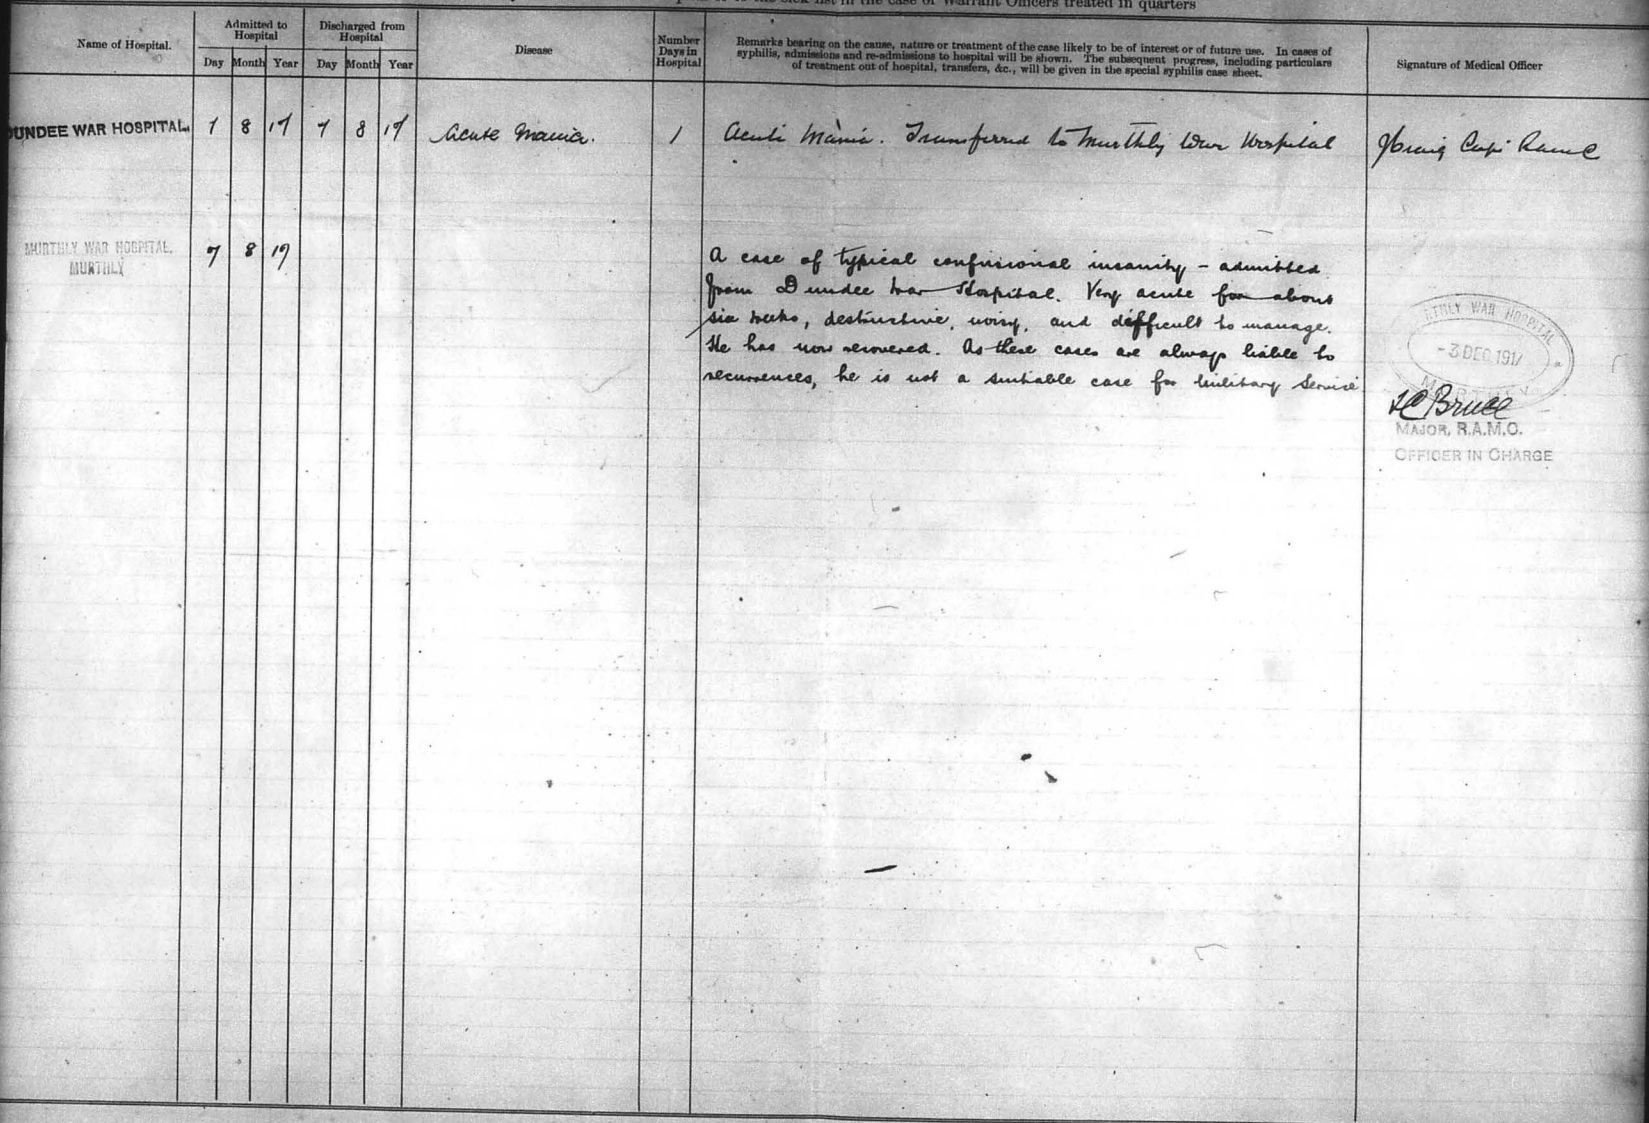 the sick list in the case of Warrant Officers treated in quarters
Name of Hospital.
Admitted to Hospital
Discharged from Hospital
Disease
Number Days in Hospital
Remarks bearing on the cause, nature or treatment of the case likely to be of interest or of future use. In cases of
syphilis, admissions and re-admissions to hospital will be shown. The subsequent progress, including particulars
of treatment out of hospital, transfers, &c., will be given in the special syphilis case sheet.
Signature of Medical Officer
Day Month Year Day Month Year
DUNDEE WAR HOSPITAL. 7 8 17 7 8 17 Acute Mania. 1 Acute Mania. Transferred to Murthly War Hospital Craig Capt RAMC
MURTHLY WAR HOSPITAL, 7 8 17
MURTHLY
A case of typical confusional insanity - admitted
from Dundee War Hospital. Very acute for about
six weeks, destructive, noisy, and difficult to manage.
He has now recovered. As these cases are always liable to
recurrences, he is not a suitable case for Military Service
MURTHLY WAR HOSPITAL
-3 DEC 1917
MURTHLY
LC Bruce
MAJOR, R.A.M.C.
OFFICER IN CHARGE